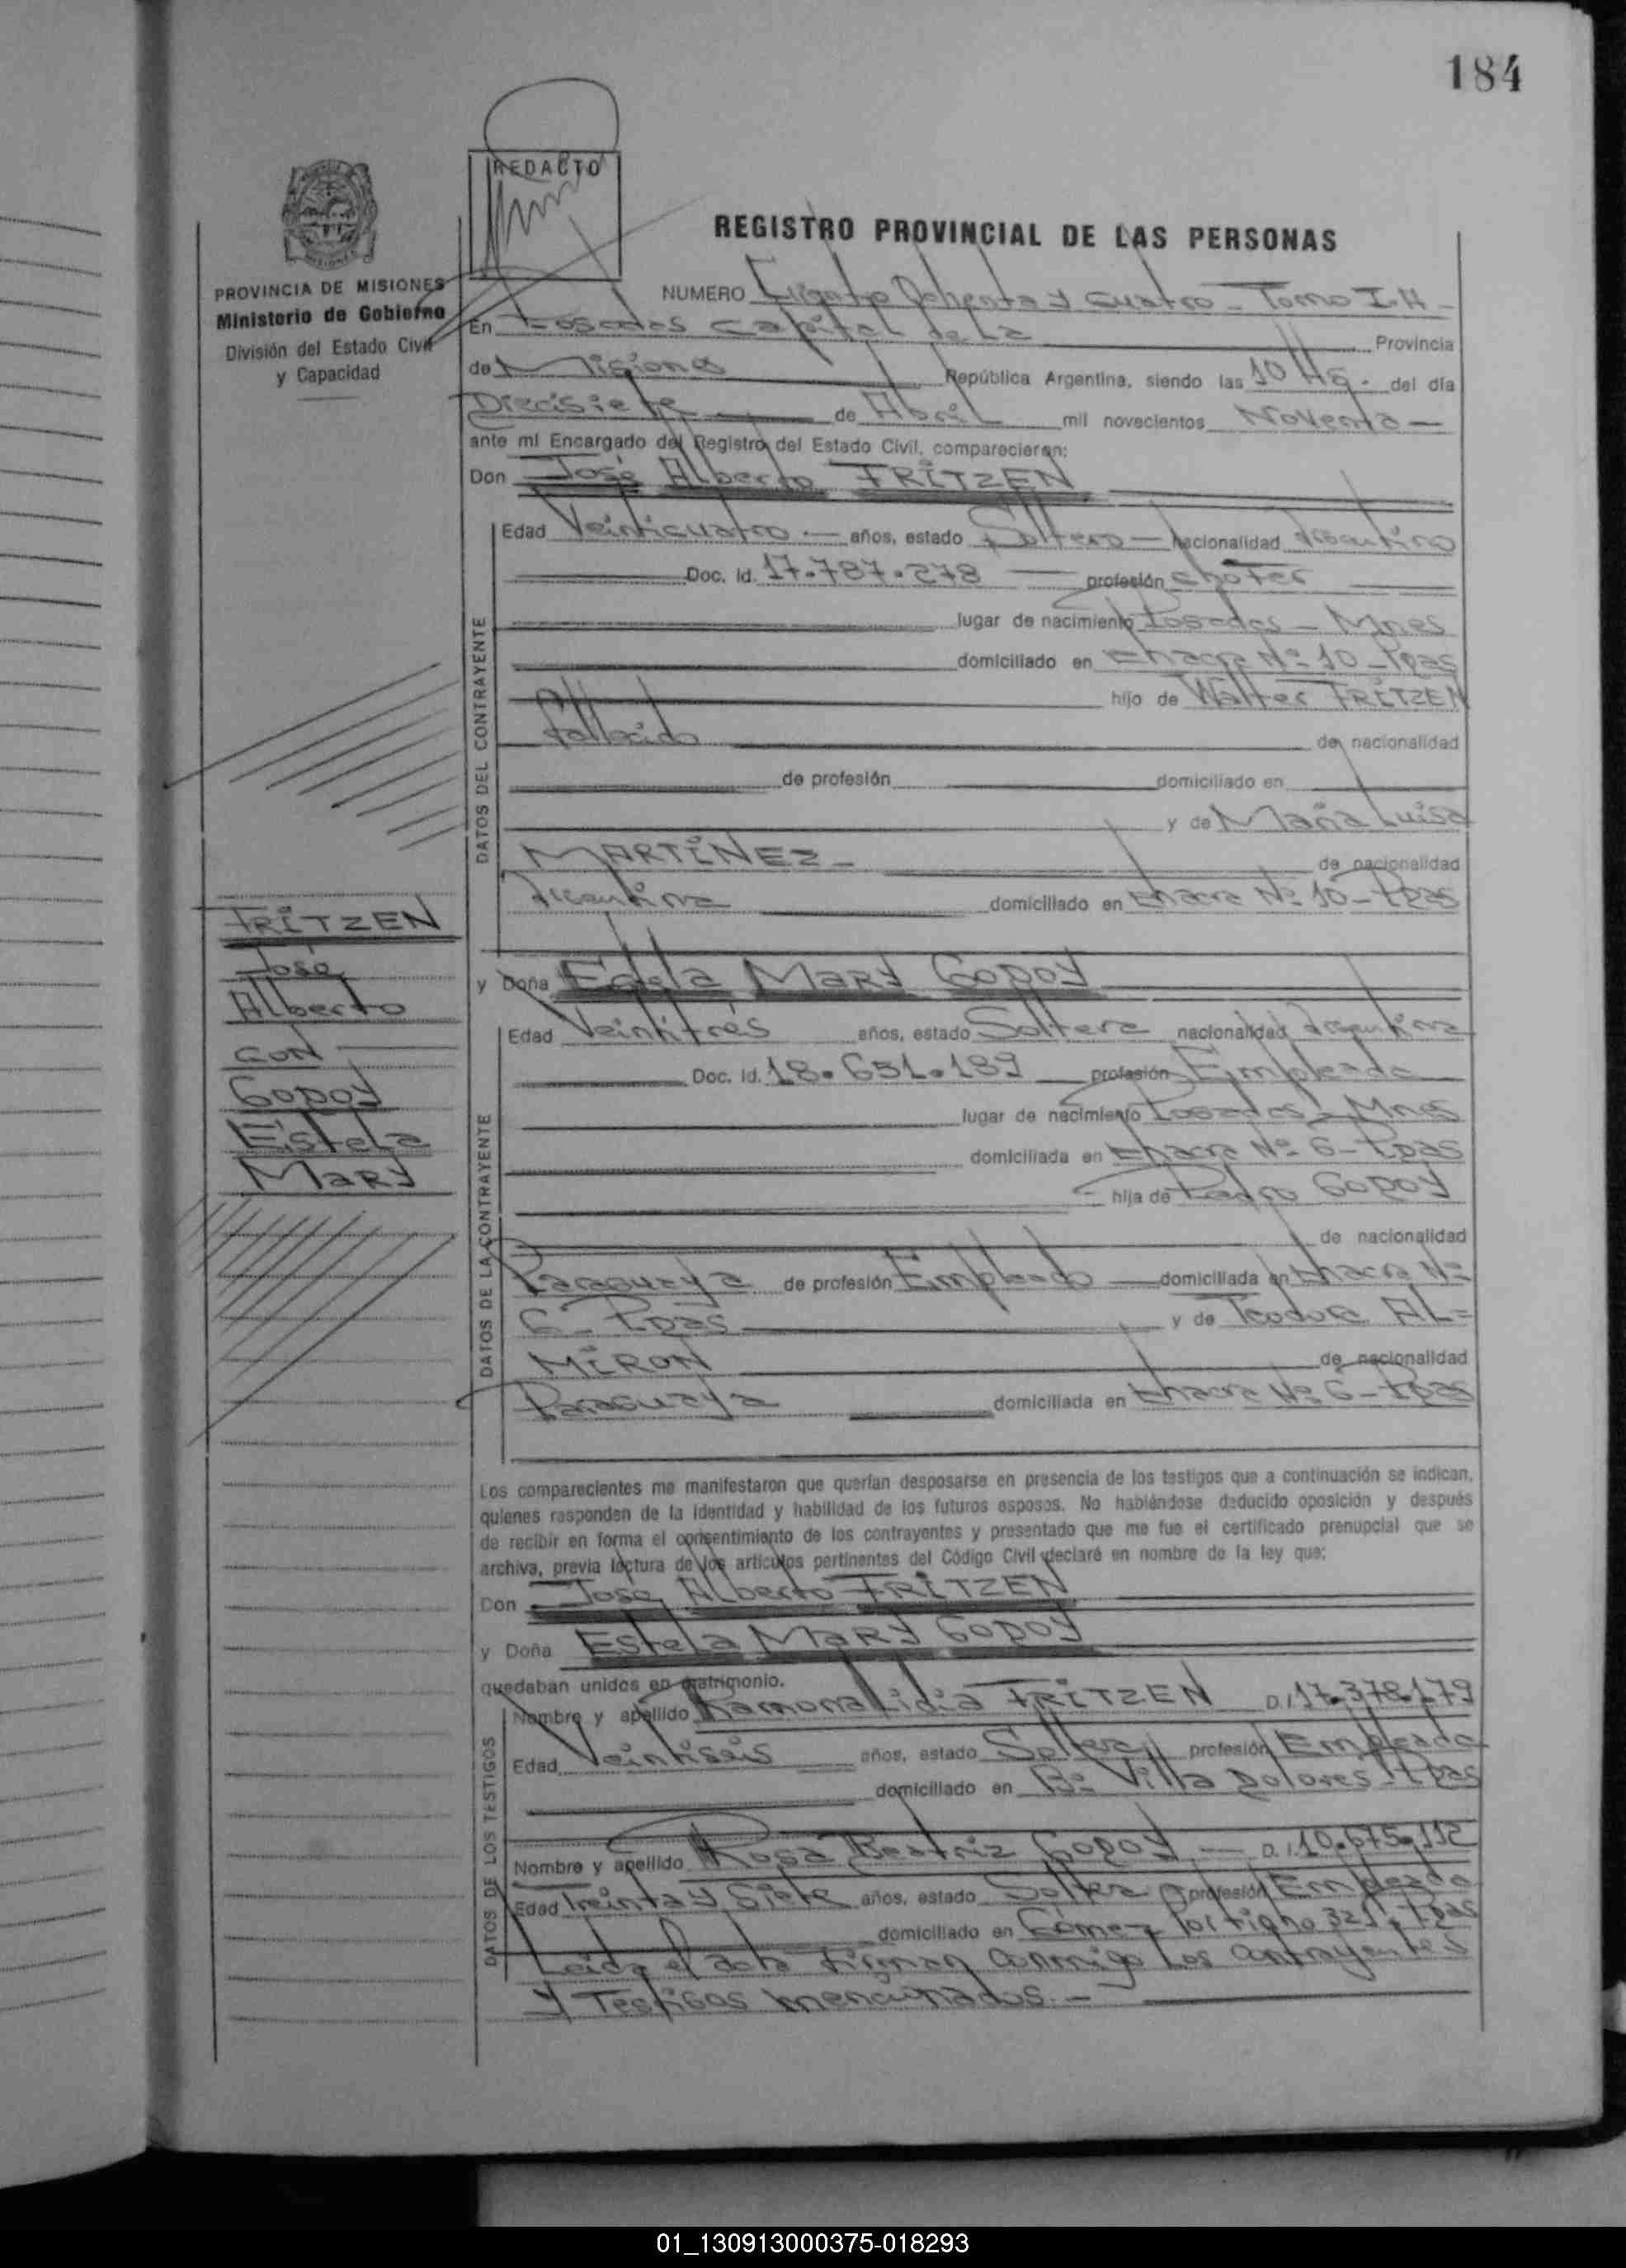 184
REDACTO
REGISTRO PROVINCIAL DE LAS PERSONAS
PROVINCIA DE MISIONES
Ministerio de Gobierno
División del Estado Civil
y Capacidad
NUMERO Ciento Ochenta y cuatro - Tomo I-H -
En Posadas Capital de La Provincia
de Misiones República Argentina, siendo las 10 Hs. del día
Diecisiete de Abril mil novecientos Noventa -
ante mí Encargado del Registro del Estado Civil, comparecieron:
Don José Alberto FRITZEN
DATOS DEL CONTRAYENTE
Edad Veinticuatro - años, estado Soltero - nacionalidad Argentino
Doc. Id. 17.787.278 profesión chofer
lugar de nacimiento Posadas - Mnes
domiciliado en Chacra Nº 10 - Pdas
hijo de Walter FRITZEN
fallecido de nacionalidad
de profesión domiciliado en
y de María Luisa
MARTINEZ - de nacionalidad
Argentina domiciliado en Chacra Nº 10 - Pdas
FRITZEN
José
Alberto
CON
GODOY
Estela
MARY
y Doña Estela MARY GODOY
DATOS DE LA CONTRAYENTE
Edad Veintitrés años, estado Soltera nacionalidad Argentina
Doc. Id. 18.651.189 profesión Empleada
lugar de nacimiento Posadas - Mnes
domiciliada en Chacra Nº 6 - Pdas
hija de Pedro GODOY
de nacionalidad
Paraguaya de profesión Empleado domiciliada en Chacra Nº
6 - Pdas y de Teodora AL=
MIRON de nacionalidad
Paraguaya domiciliada en Chacra Nº 6 - Pdas
Los comparecientes me manifestaron que querían desposarse en presencia de los testigos que a continuación se indican,
quienes responden de la identidad y habilidad de los futuros esposos. No habiéndose deducido oposición y después
de recibir en forma el consentimiento de los contrayentes y presentado que me fue el certificado prenupcial que se
archiva, previa lectura de los artículos pertinentes del Código Civil declaré en nombre de la ley que:
Don José Alberto FRITZEN
y Doña Estela MARY GODOY
quedaban unidos en matrimonio.
DATOS DE LOS TESTIGOS
Nombre y apellido Ramona Lidia FRITZEN D.I. 17.378.179
Edad Veintiséis años, estado Soltera profesión Empleada
domiciliado en Bº Villa Dolores - Pdas
Nombre y apellido Rosa Beatriz GODOY - D.I. 10.675.112
Edad Treinta y Siete años, estado Soltera profesión Empleada
domiciliado en Gómez Portigno 321, Pdas
Leida el acta firman conmigo Los contrayentes
y Testigos mencionados. -
01_130913000375-018293